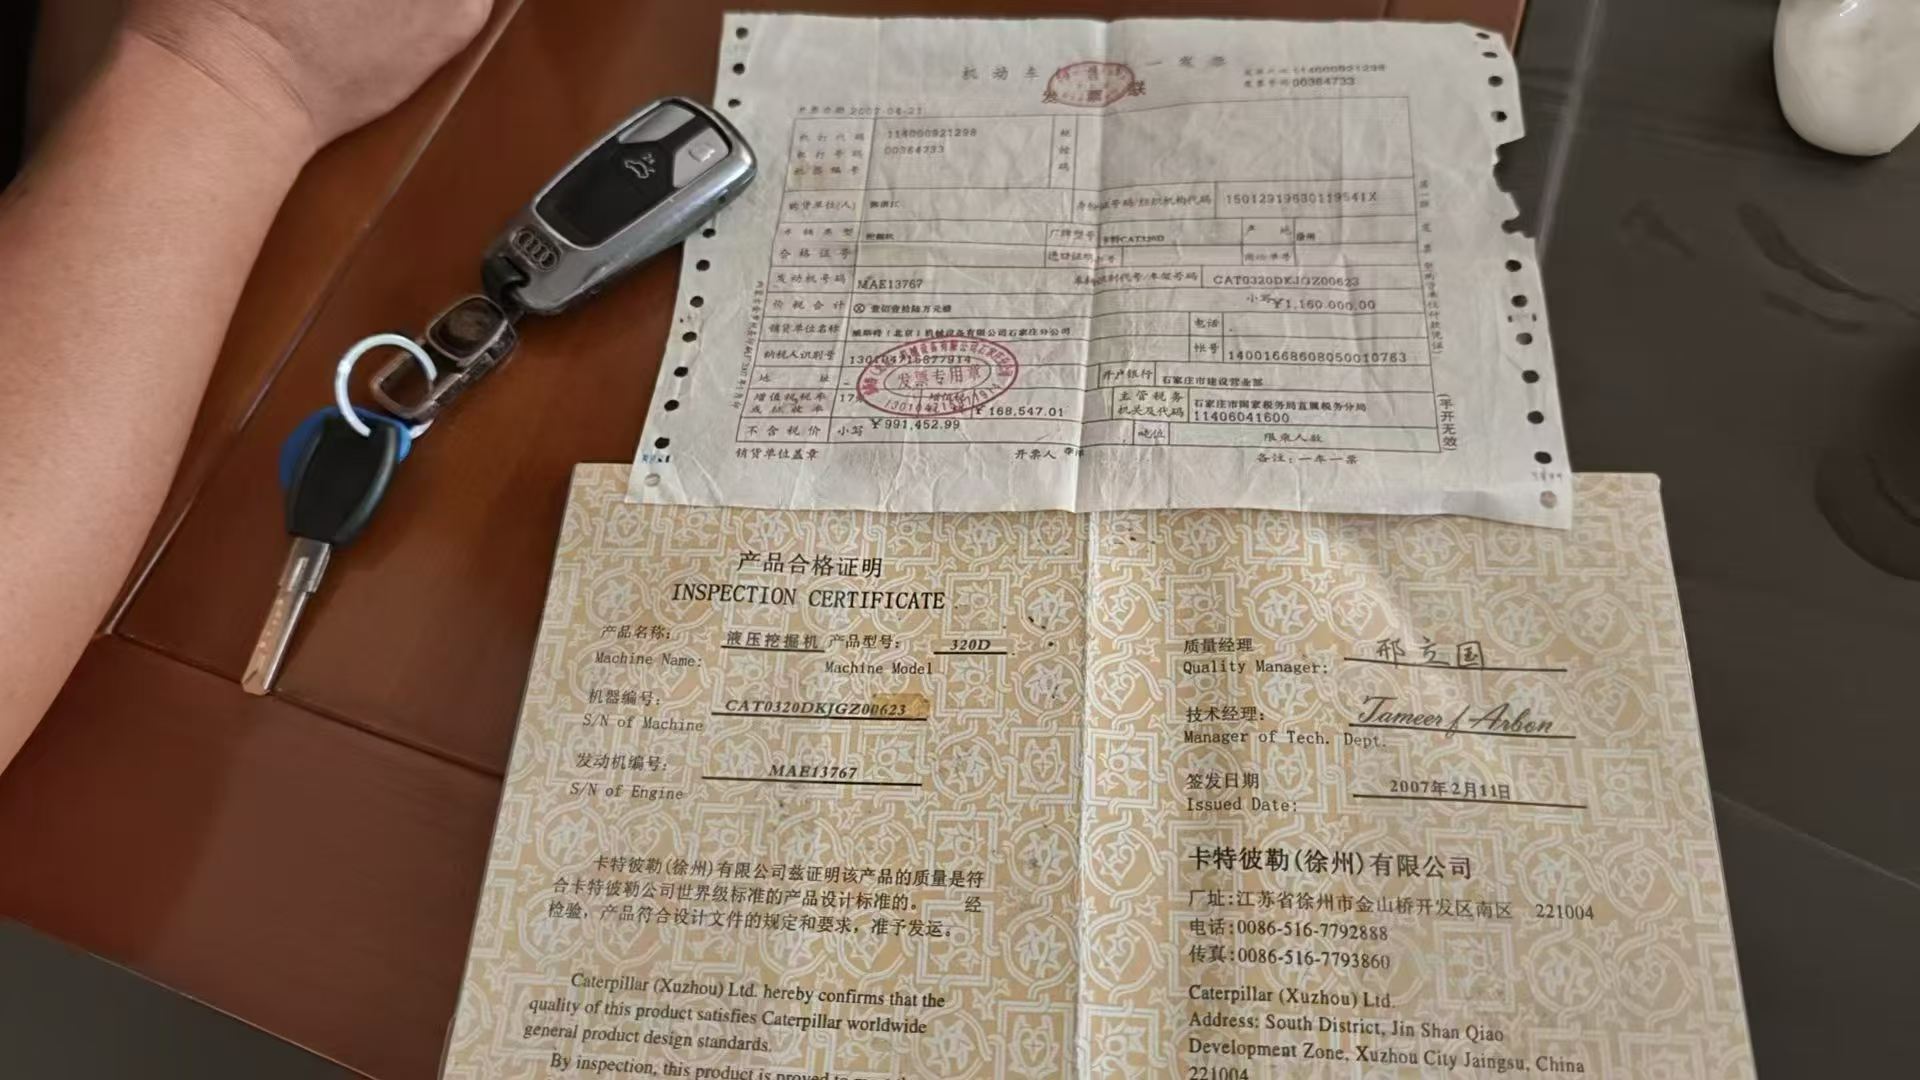 发票联
发票代码 114000921298
发票号码 00364733
开票日期 2007-08-21
机打代码 114000921298
机打号码 00364733
机器编号
税控码
购货单位(人)
身份证号码/组织机构代码 15012919630119541X
车辆类型 挖掘机
厂牌型号 卡特CAT320D
产地 徐州
合格证号
进口证明书号
商检单号
发动机号码 MAE13767
车辆识别代号/车架号码 CAT0320DKJGZ00623
价税合计 ⊗ 壹佰壹拾陆万元整
小写 ¥1,160,000.00
销货单位名称 威斯特(北京)机械设备有限公司石家庄分公司
电话
纳税人识别号 130104715877914
帐号 14001668608050010763
地址
开户银行 石家庄市建设营业部
增值税税率或征收率 17%
增值税 ¥168,547.01
主管税务机关及代码 石家庄市国家税务局直属税务分局
11406041600
不含税价 小写 ¥991,452.99
吨位
限乘人数
销货单位盖章
开票人
备注:一车一票
(手开无效)
发票专用章
产品合格证明
INSPECTION CERTIFICATE
产品名称: 液压挖掘机 产品型号: 320D
Machine Name: Machine Model
机器编号: CAT0320DKJGZ00623
S/N of Machine
发动机编号: MAE13767
S/N of Engine
卡特彼勒(徐州)有限公司兹证明该产品的质量是符
合卡特彼勒公司世界级标准的产品设计标准的。 经
检验,产品符合设计文件的规定和要求,准予发运。
Caterpillar (Xuzhou) Ltd. hereby confirms that the
quality of this product satisfies Caterpillar worldwide
general product design standards.
By inspection, this product is proved to
质量经理 邢立国
Quality Manager:
技术经理: Tameer f Arbon
Manager of Tech. Dept.
签发日期 2007年2月11日
Issued Date:
卡特彼勒(徐州)有限公司
厂址:江苏省徐州市金山桥开发区南区 221004
电话:0086-516-7792888
传真:0086-516-7793860
Caterpillar (Xuzhou) Ltd.
Address: South District, Jin Shan Qiao
Development Zone, Xuzhou City Jaingsu, China
221004